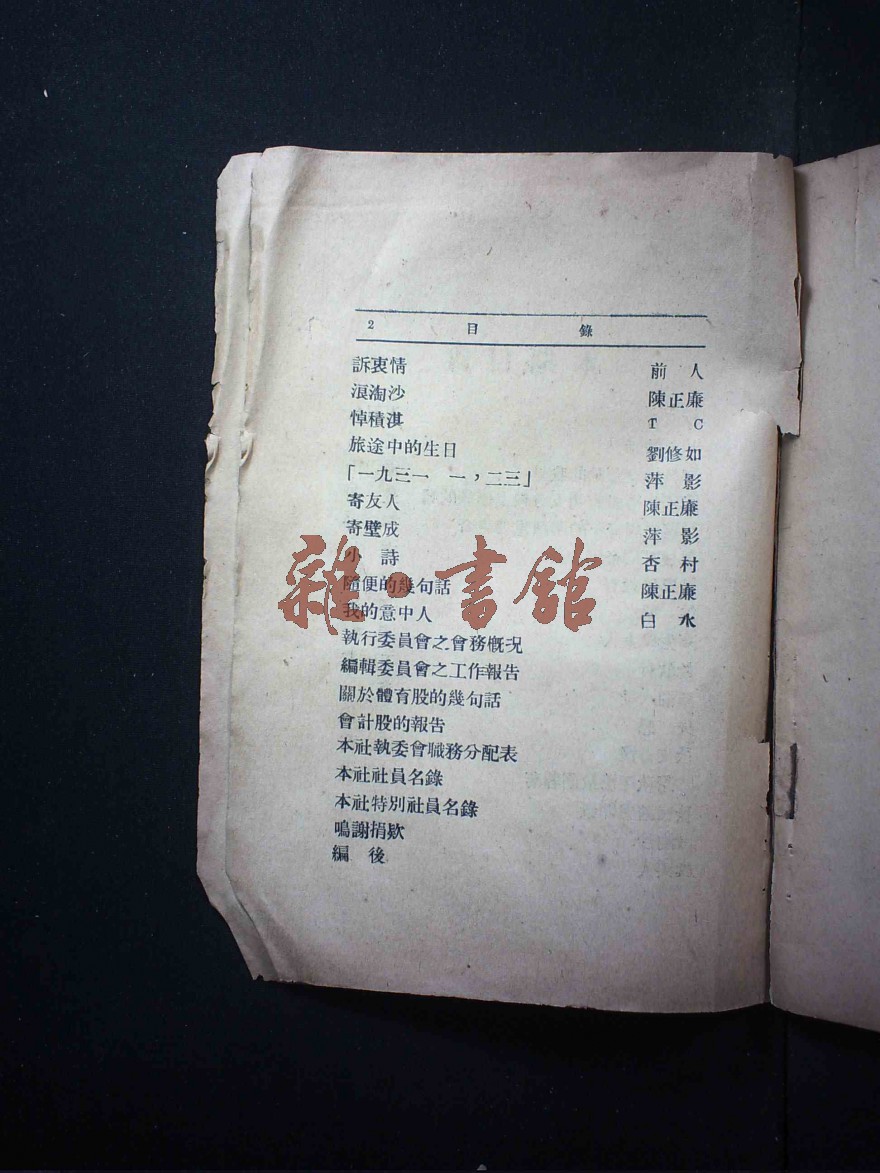 2 目錄
訴衷情 前人
浪淘沙 陳正廉
悼積淇 T C
旅途中的生日 劉修如
「一九三一 一，二三」 萍影
寄友人 陳正廉
寄壁成 萍影
小詩 杏村
隨便的幾句話 陳正廉
我的意中人 白水
執行委員會之會務概况
編輯委員會之工作報告
關於體育股的幾句話
會計股的報告
本社執委會職務分配表
本社社員名錄
本社特別社員名錄
鳴謝捐欵
編後
雜·書館